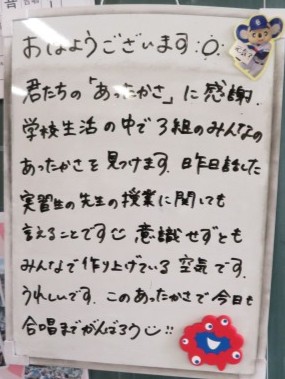 おはようございます:○:
君たちの「あったかさ」に感謝.
学校生活の中で3組のみんなの
あったかさを見つけます.昨日話した
実習生の先生の授業に関しても
言えることです☺ 意識せずとも
みんなで作り上げている空気です.
うれしいです.このあったかさで今日も
合唱までがんばろう☺!!